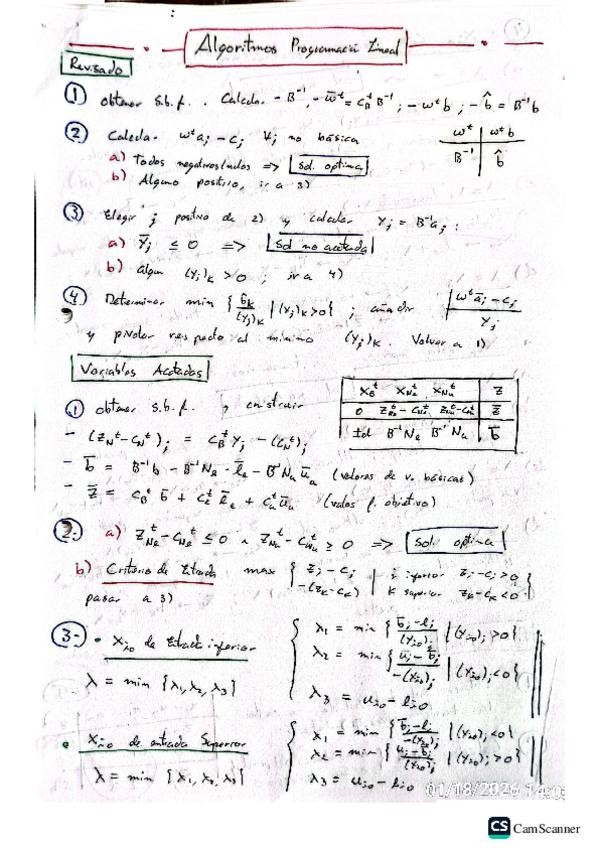 Algoritmos Programació Lineal
Revisado
1) obtener s.b.f. . Calcula - B⁻¹, - w̄ᵗ = c_Bᵗ B⁻¹ ; - wᵗb ; - b̂ = B⁻¹b
2) Calcula - wᵗaⱼ - cⱼ ∀ⱼ no básica
wᵗ | wᵗb
B⁻¹ | b̂
a) Todos negativos/nulos => Sol. optima
b) Alguno positivo, ir a 3)
3) Elegir j positivo de 2) y calcular Yⱼ = B⁻¹aⱼ :
a) Ȳⱼ ≤ 0 => Sol no acotada
b) algun (Yⱼ)ₖ > 0 ; ir a 4)
4) Determinar min { b̄ₖ/(Yⱼ)ₖ | (Yⱼ)ₖ>0 } ; añadir | wᵗāⱼ - cⱼ / Yⱼ
y pivotar respecto al mínimo (Yⱼ)ₖ. Volver a 1)
Variables Acotadas
1) obtener s.b.f. y construir
X_Bᵗ X_Nₑᵗ X_Nᵤᵗ | Z
0 Z_Nₑᵗ - C_Nₑᵗ Z_Nᵤᵗ - C_Nᵤᵗ | z̄
Id B⁻¹Nₑ B⁻¹Nᵤ | b̄
- (Z_Nᵗ - C_Nᵗ)ⱼ = C_Bᵗ Yⱼ - (C_Nᵗ)ⱼ
- b̄ = B⁻¹b - B⁻¹Nₑ · l̄ₑ - B⁻¹Nᵤ ūᵤ (valores de v. básicas)
- z̄ = C_Bᵗ b̄ + Cₑᵗ l̄ₑ + Cᵤᵗ ūᵤ (valor f. objetivo)
2. a) Z_Nₑᵗ - C_Nₑᵗ ≤ 0 ∧ Z_Nᵤᵗ - C_Nᵤᵗ ≥ 0 => Sol. optima
b) Criterio de Etrada max { Zⱼ - Cⱼ / -(Zₖ - Cₖ) | j inferior Zⱼ - Cⱼ > 0 / K superior Zₖ - Cₖ < 0 }
pasar a 3)
3.- • Xⱼ₀ de Etrada inferior
λ₁ = min { b̄ᵢ - lᵢ / (Yⱼ₀)ᵢ | (Yⱼ₀)ᵢ > 0 }
λ₂ = min { uᵢ - b̄ᵢ / -(Yⱼ₀)ᵢ | (Yⱼ₀)ᵢ < 0 }
λ = min {λ₁, λ₂, λ₃}
λ₃ = uⱼ₀ - lⱼ₀
• Xⱼ₀ de entrada Superior
λ₁ = min { b̄ᵢ - lᵢ / -(Yⱼ₀)ᵢ | (Yⱼ₀)ᵢ < 0 }
λ₂ = min { uᵢ - b̄ᵢ / (Yⱼ₀)ᵢ | (Yⱼ₀)ᵢ > 0 }
λ = min {λ₁, λ₂, λ₃}
λ₃ = uⱼ₀ - lⱼ₀
01/18/2026 14:03
CS CamScanner